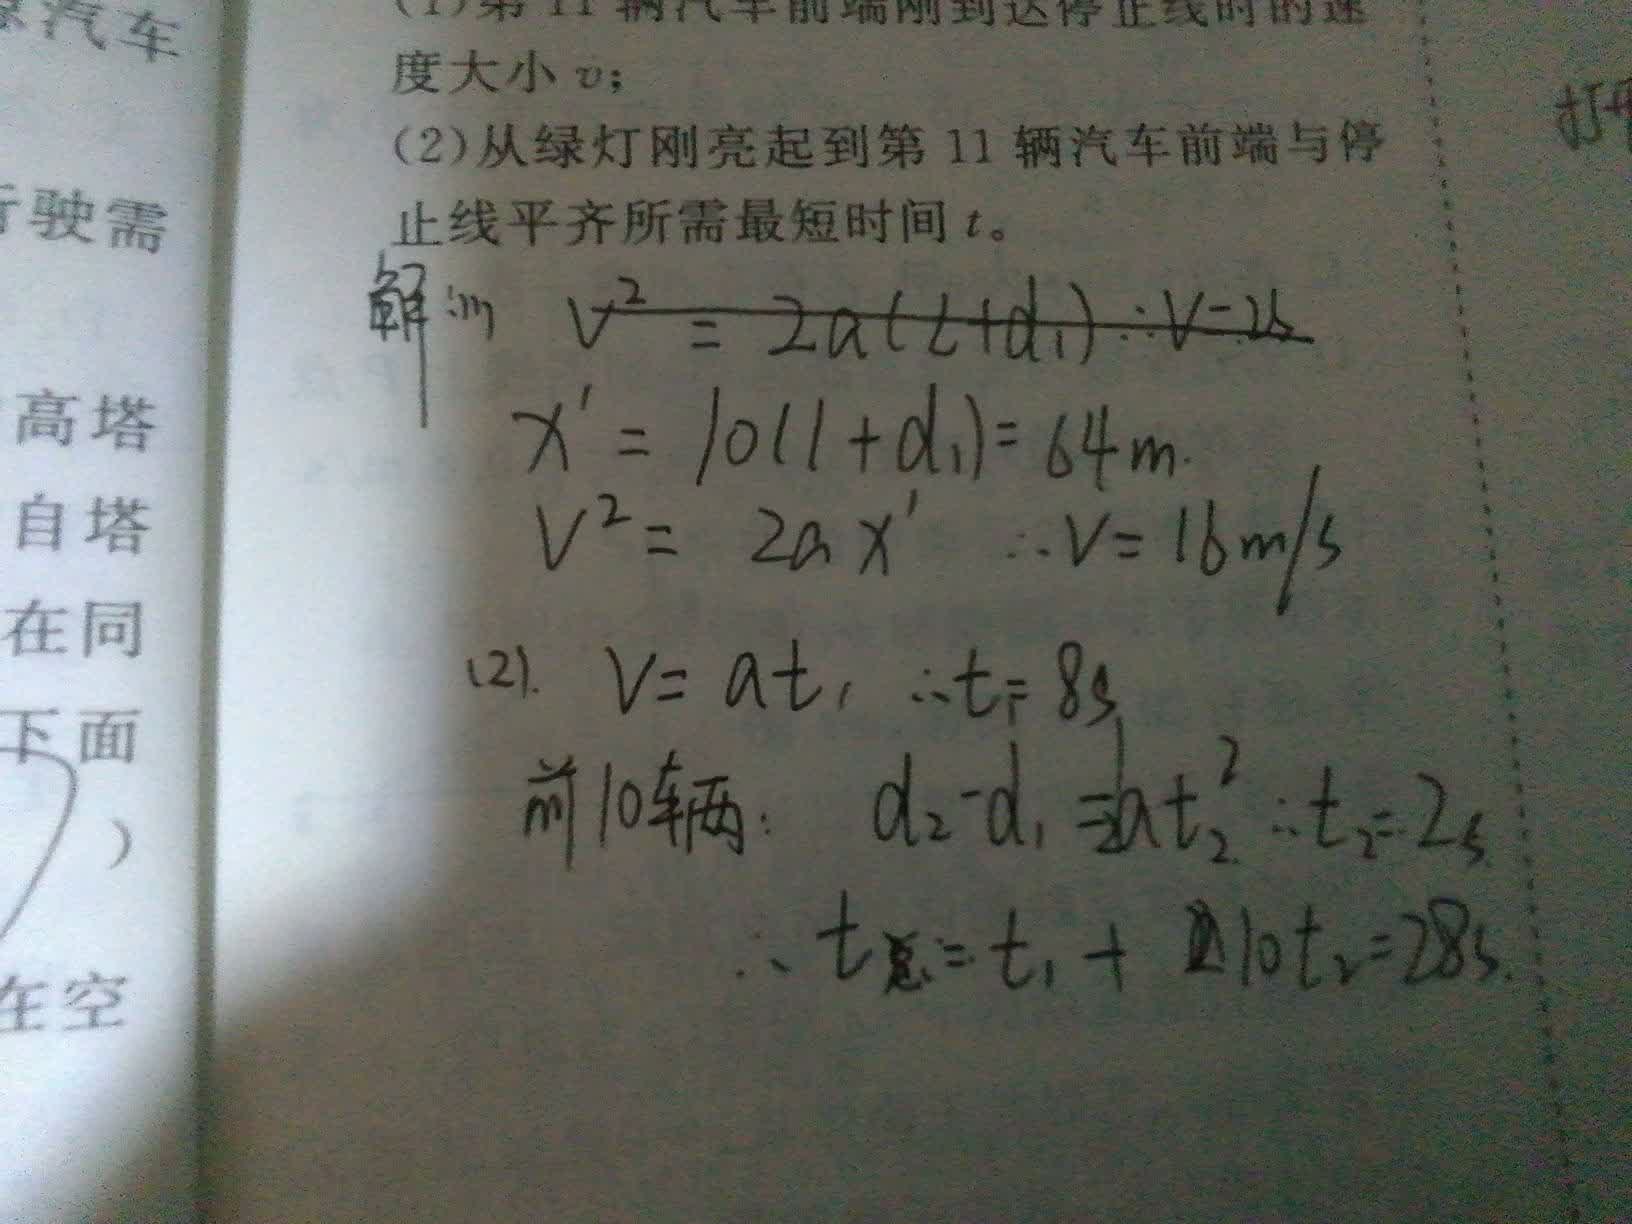 汽车
行驶需
高塔
自塔
在同
下面
)
在空
(1)第 11 辆汽车前端刚到达停止线时的速
度大小 v;
(2)从绿灯刚亮起到第 11 辆汽车前端与停
止线平齐所需最短时间 t。
解:(1) v² = 2a(l+d₁) ∴v=
x′ = 10(l+d₁)=64m.
v² = 2ax′ ∴v=16m/s
(2). v= at₁ ∴t₁= 8s
前10车辆: d₂-d₁ =½at₂² ∴t₂=2s
∴ t总= t₁ + 10t₂=28s.